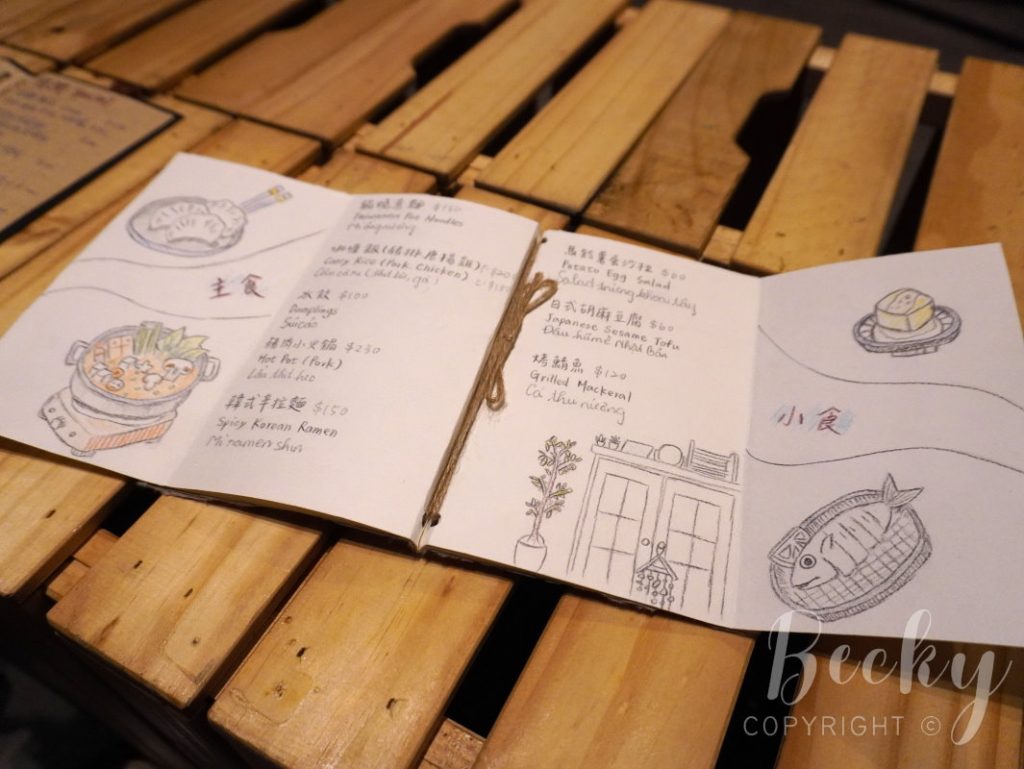 主食
鍋燒意麵 $150
Taiwanese Pot Noodles
咖哩飯(豬排.唐揚雞)
Curry Rice (Pork, Chicken)
水餃 $100
Dumplings
Sủi cảo
豬肉小火鍋 $230
Hot Pot (Pork)
Lẩu thịt heo
韓式手拉麵 $150
Spicy Korean Ramen
Mì ramen shin
馬鈴薯蛋沙拉 $60
Potato Egg Salad
Salad trứng khoai tây
日式胡麻豆腐 $60
Japanese Sesame Tofu
Đậu hũ mè Nhật Bản
烤鯖魚 $120
Grilled Mackeral
Cá thu nướng
小食
Becky
COPYRIGHT ©